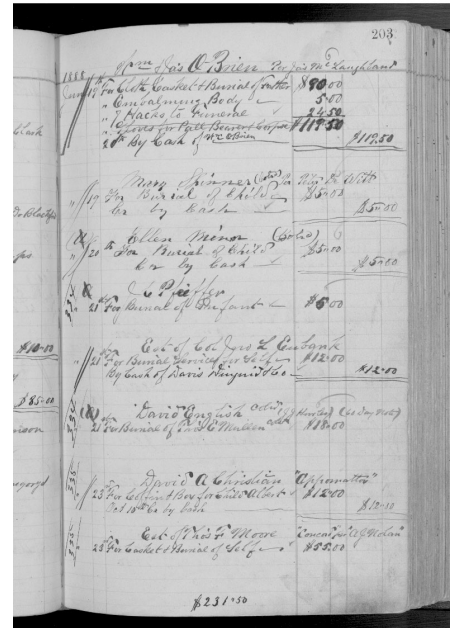 203
1888 Wm Jas O'Brien Per Jas McLaughland
June 19th For Cloth Casket & Burial of Father $90.00
" Embalming Body 5.00
" 7 Hacks to Funeral 24.50
" Gloves for Pall Bearers & Corpse $119.50
20th By Cash of O'Brien $119.50
Mary Skinner (Cold) Per DeWitt
" 19 For Burial of Child $5.00
Cr by Cash $5.00
Ellen Minor (Cold)
" 20th For Burial of Child $5.00
Cr by Cash $5.00
C Pfeiffer
21st For Burial of Infant $5.00
Est of Col Jno L Eubank
" 21st For Burial Services for Self $12.00
By Cash of Davis Diuguid & Co $12.00
David English (60 Day Note)
21st For Burial of Mullen $18.00
David A Christian "Appomattox"
23rd For Coffin & Box for Child Albert $12.00
Oct 15th Cr by Cash $12.00
Est of Thos F Moore "Concord" Per A J Nolan
23rd For Casket & Burial of Self $55.00
$231.50
Clark
$10.00
$85.00